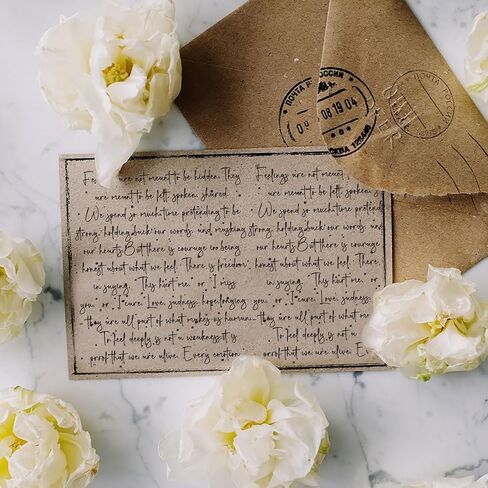 ПОЧТА РОССИИ
08 1904
МОСКВА
ПОЧТА РОССИИ
Feelings are not meant to be hidden. They Feelings are not meant
are meant to be felt, spoken, shared. are meant to be felt, spoken,
We spend so much time pretending to be We spend so much time pretend
strong, holding back our words, and masking strong, holding back our words, and
our hearts. But there is courage in being our hearts. But there is courage
honest about what we feel. There is freedom honest about what we feel. There
in saying, "This hurt me," or "I miss in saying, "This hurt me," or
you," or "I care." Love, sadness, hope, longing you," or "I care." Love, sadness,
—they are all part of what makes us human. —they are all part of what makes us human
To feel deeply is not a weakness, it is To feel deeply is not a weak
proof that we are alive. Every emotion proof that we are alive. E